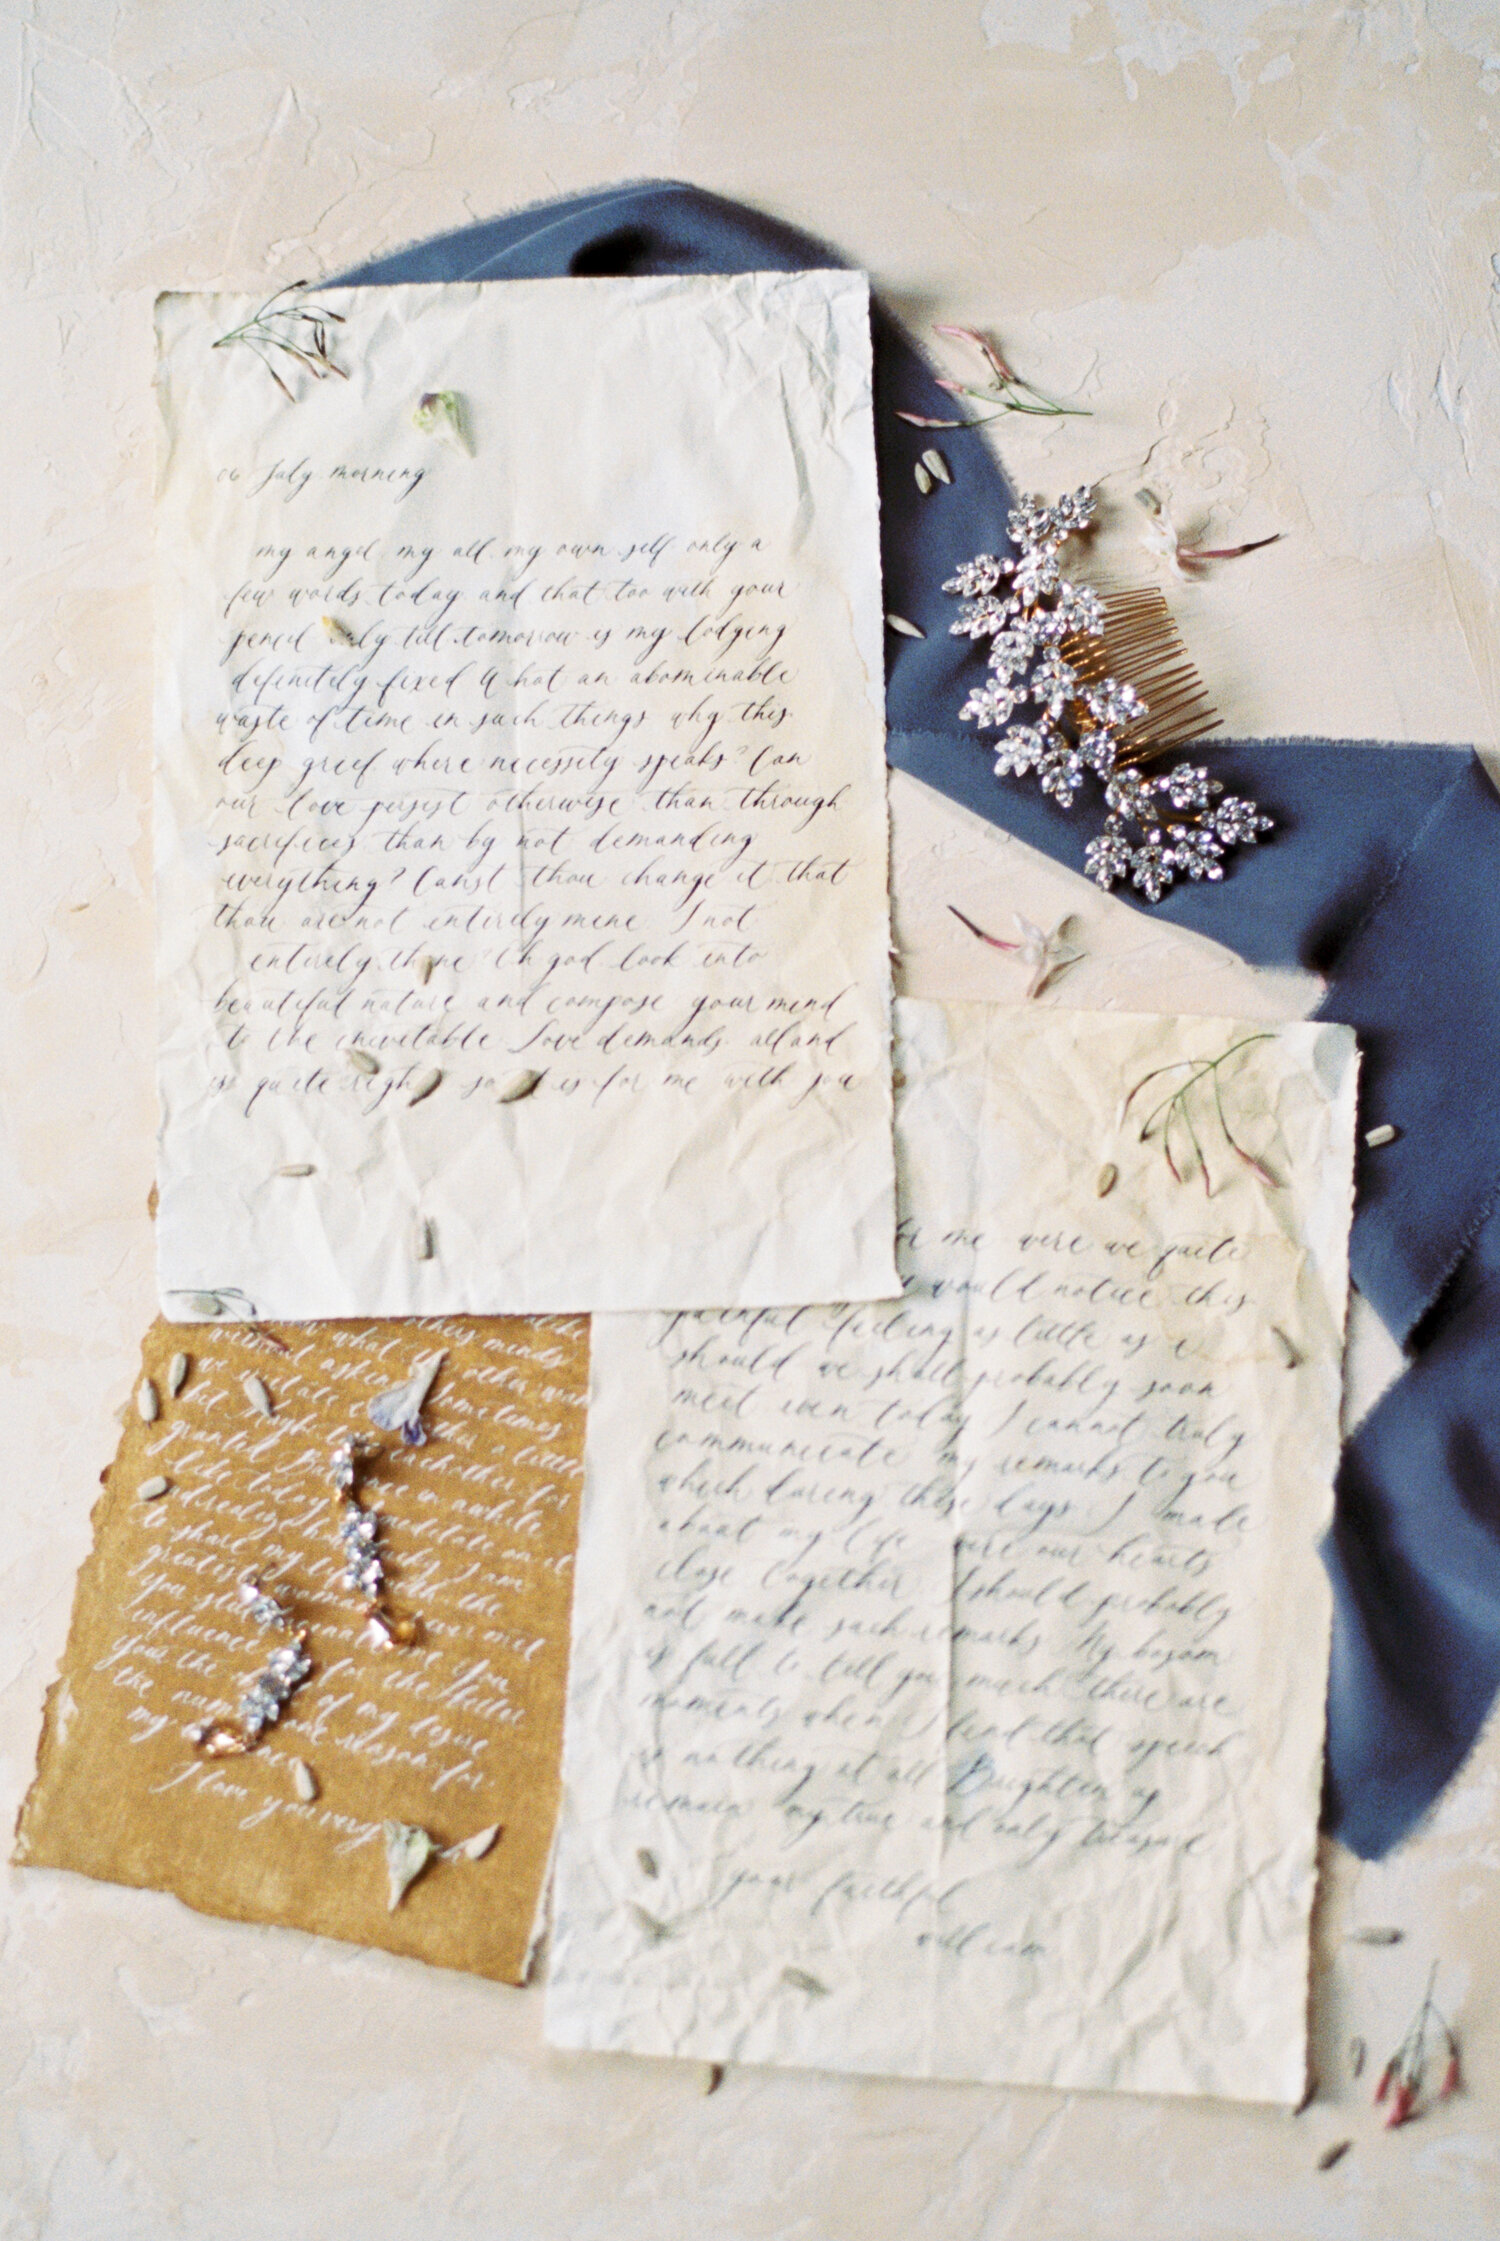 06 July morning
my angel my all my own self only a
few words today and that too with your
pencil only till tomorrow is my lodging
definitely fixed What an abominable
waste of time in such things why this
deep grief where necessity speaks? Can
our love persist otherwise than through
sacrifices than by not demanding
everything? Canst thou change it that
thou are not entirely mine I not
entirely thine Oh god look into
beautiful nature and compose your mind
to the inevitable Love demands all and
is quite right so it is for me with you
for me were we quite
would notice this
painful feeling as little as i
should we shall probably soon
meet even today I cannot truly
communicate my remarks to you
which during these days I made
about my life were our hearts
close together I should probably
not make such remarks My bosom
is full to tell you much there are
moments when I find that speech
is nothing at all Brighten up
remain my true and only treasure
your faithful
william
alike
know what others minds
without asking Sometimes
we irritate each other a little
bit Maybe take eachother for
granted But once in awhile
like today I meditate on it
and realize how lucky I am
to share my life with the
greatest woman I ever met
You still fascinate me You
influence me for the better
Your the object of my desire
the number one reason for
my
I love you very